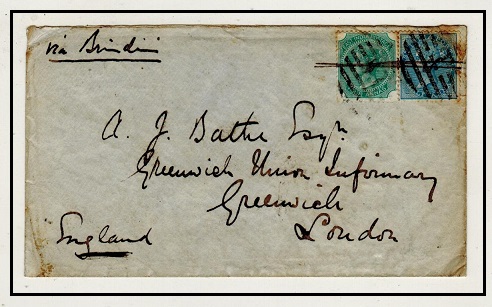 via Brindisi
A. J. Bathe Esqr.
Greenwich Union Infirmary
Greenwich
London
England